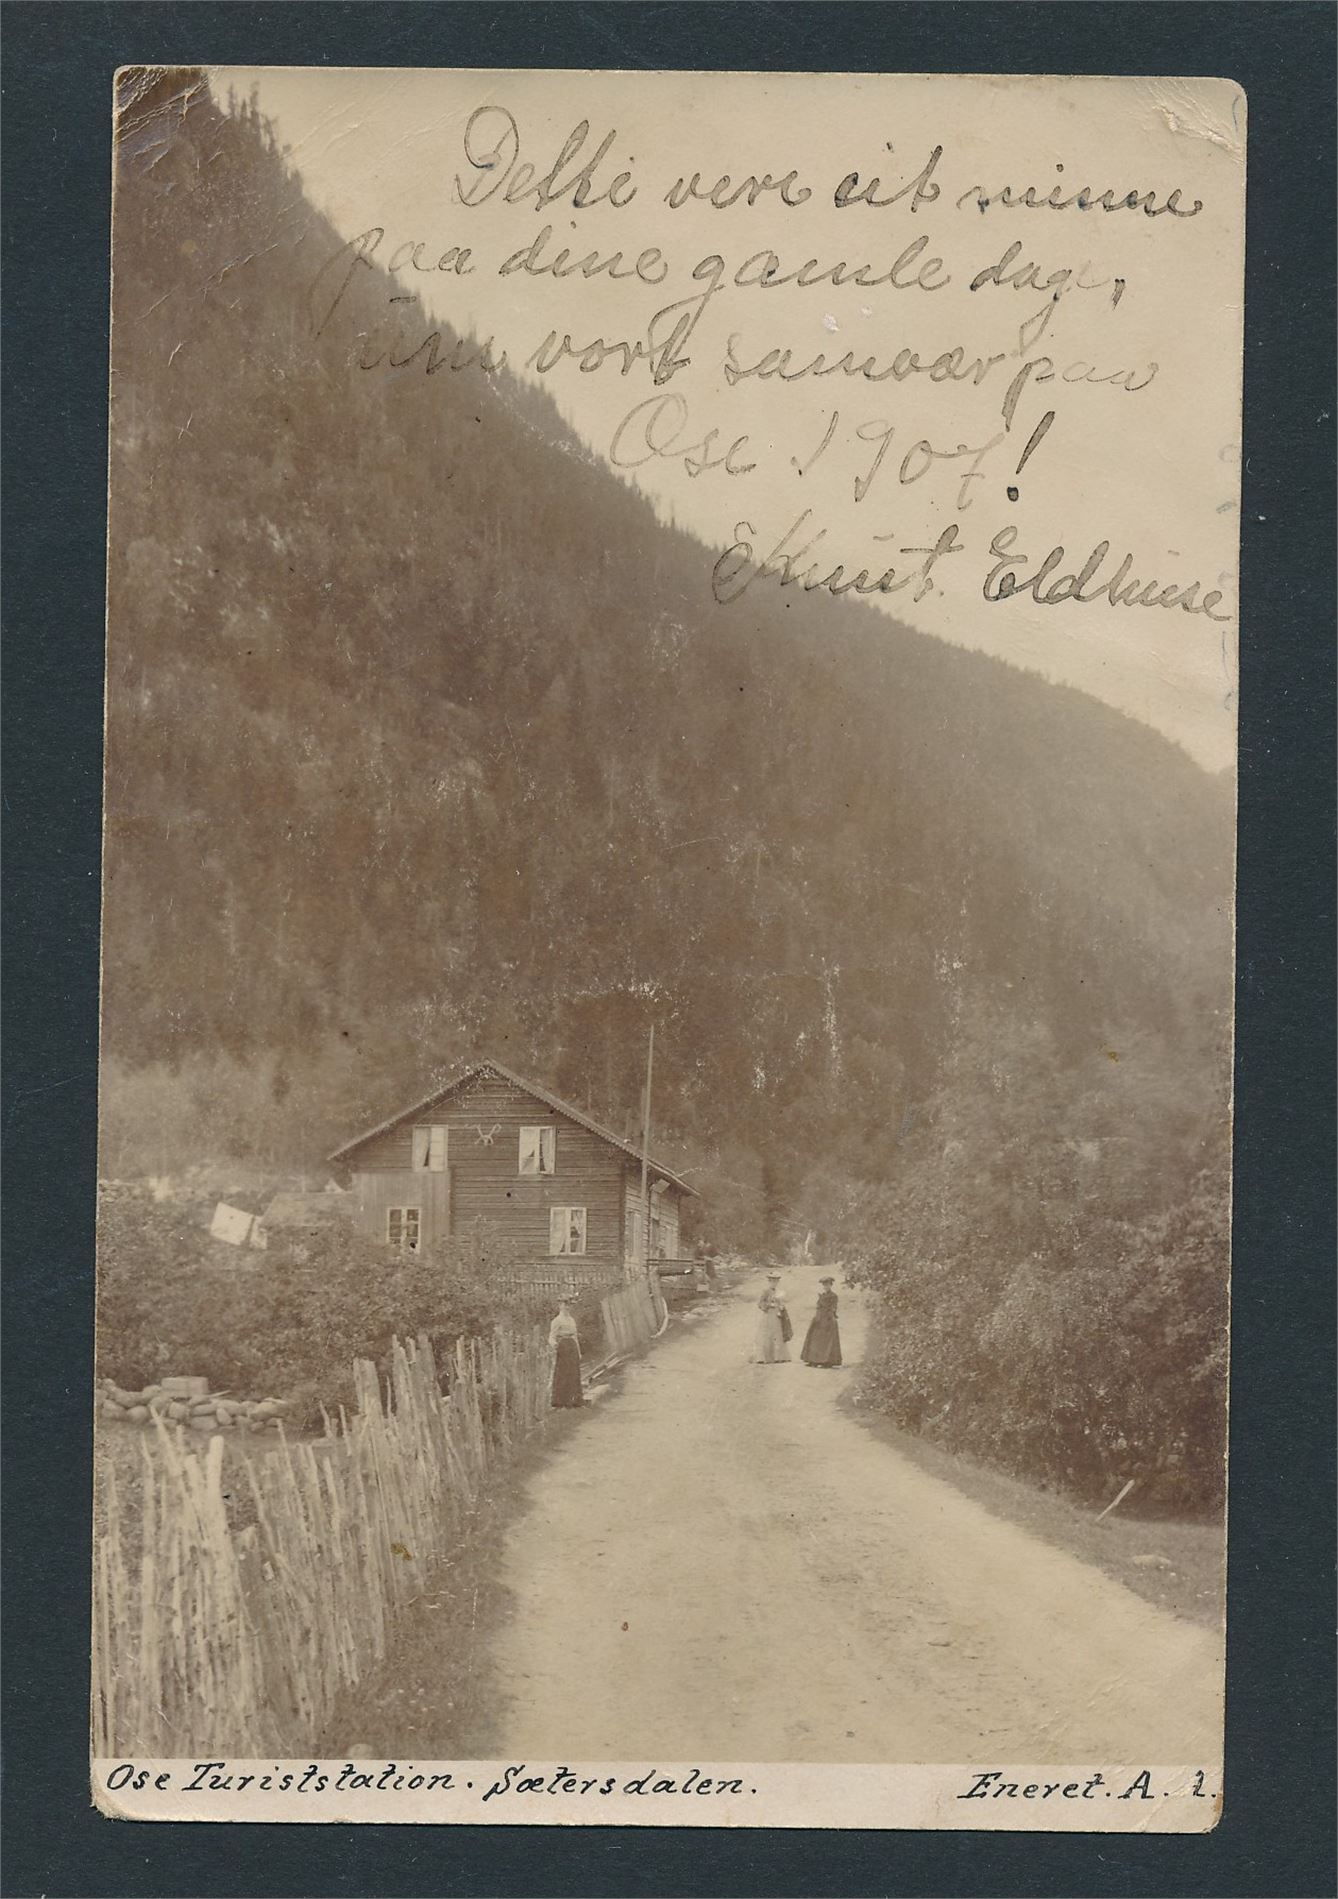 Dette vere eit minne
paa dine gamle dage,
um vort samvær paa
Ose 1907!
Knut. Eldhuse
Ose Turiststation. Sætersdalen.
Eneret. A.